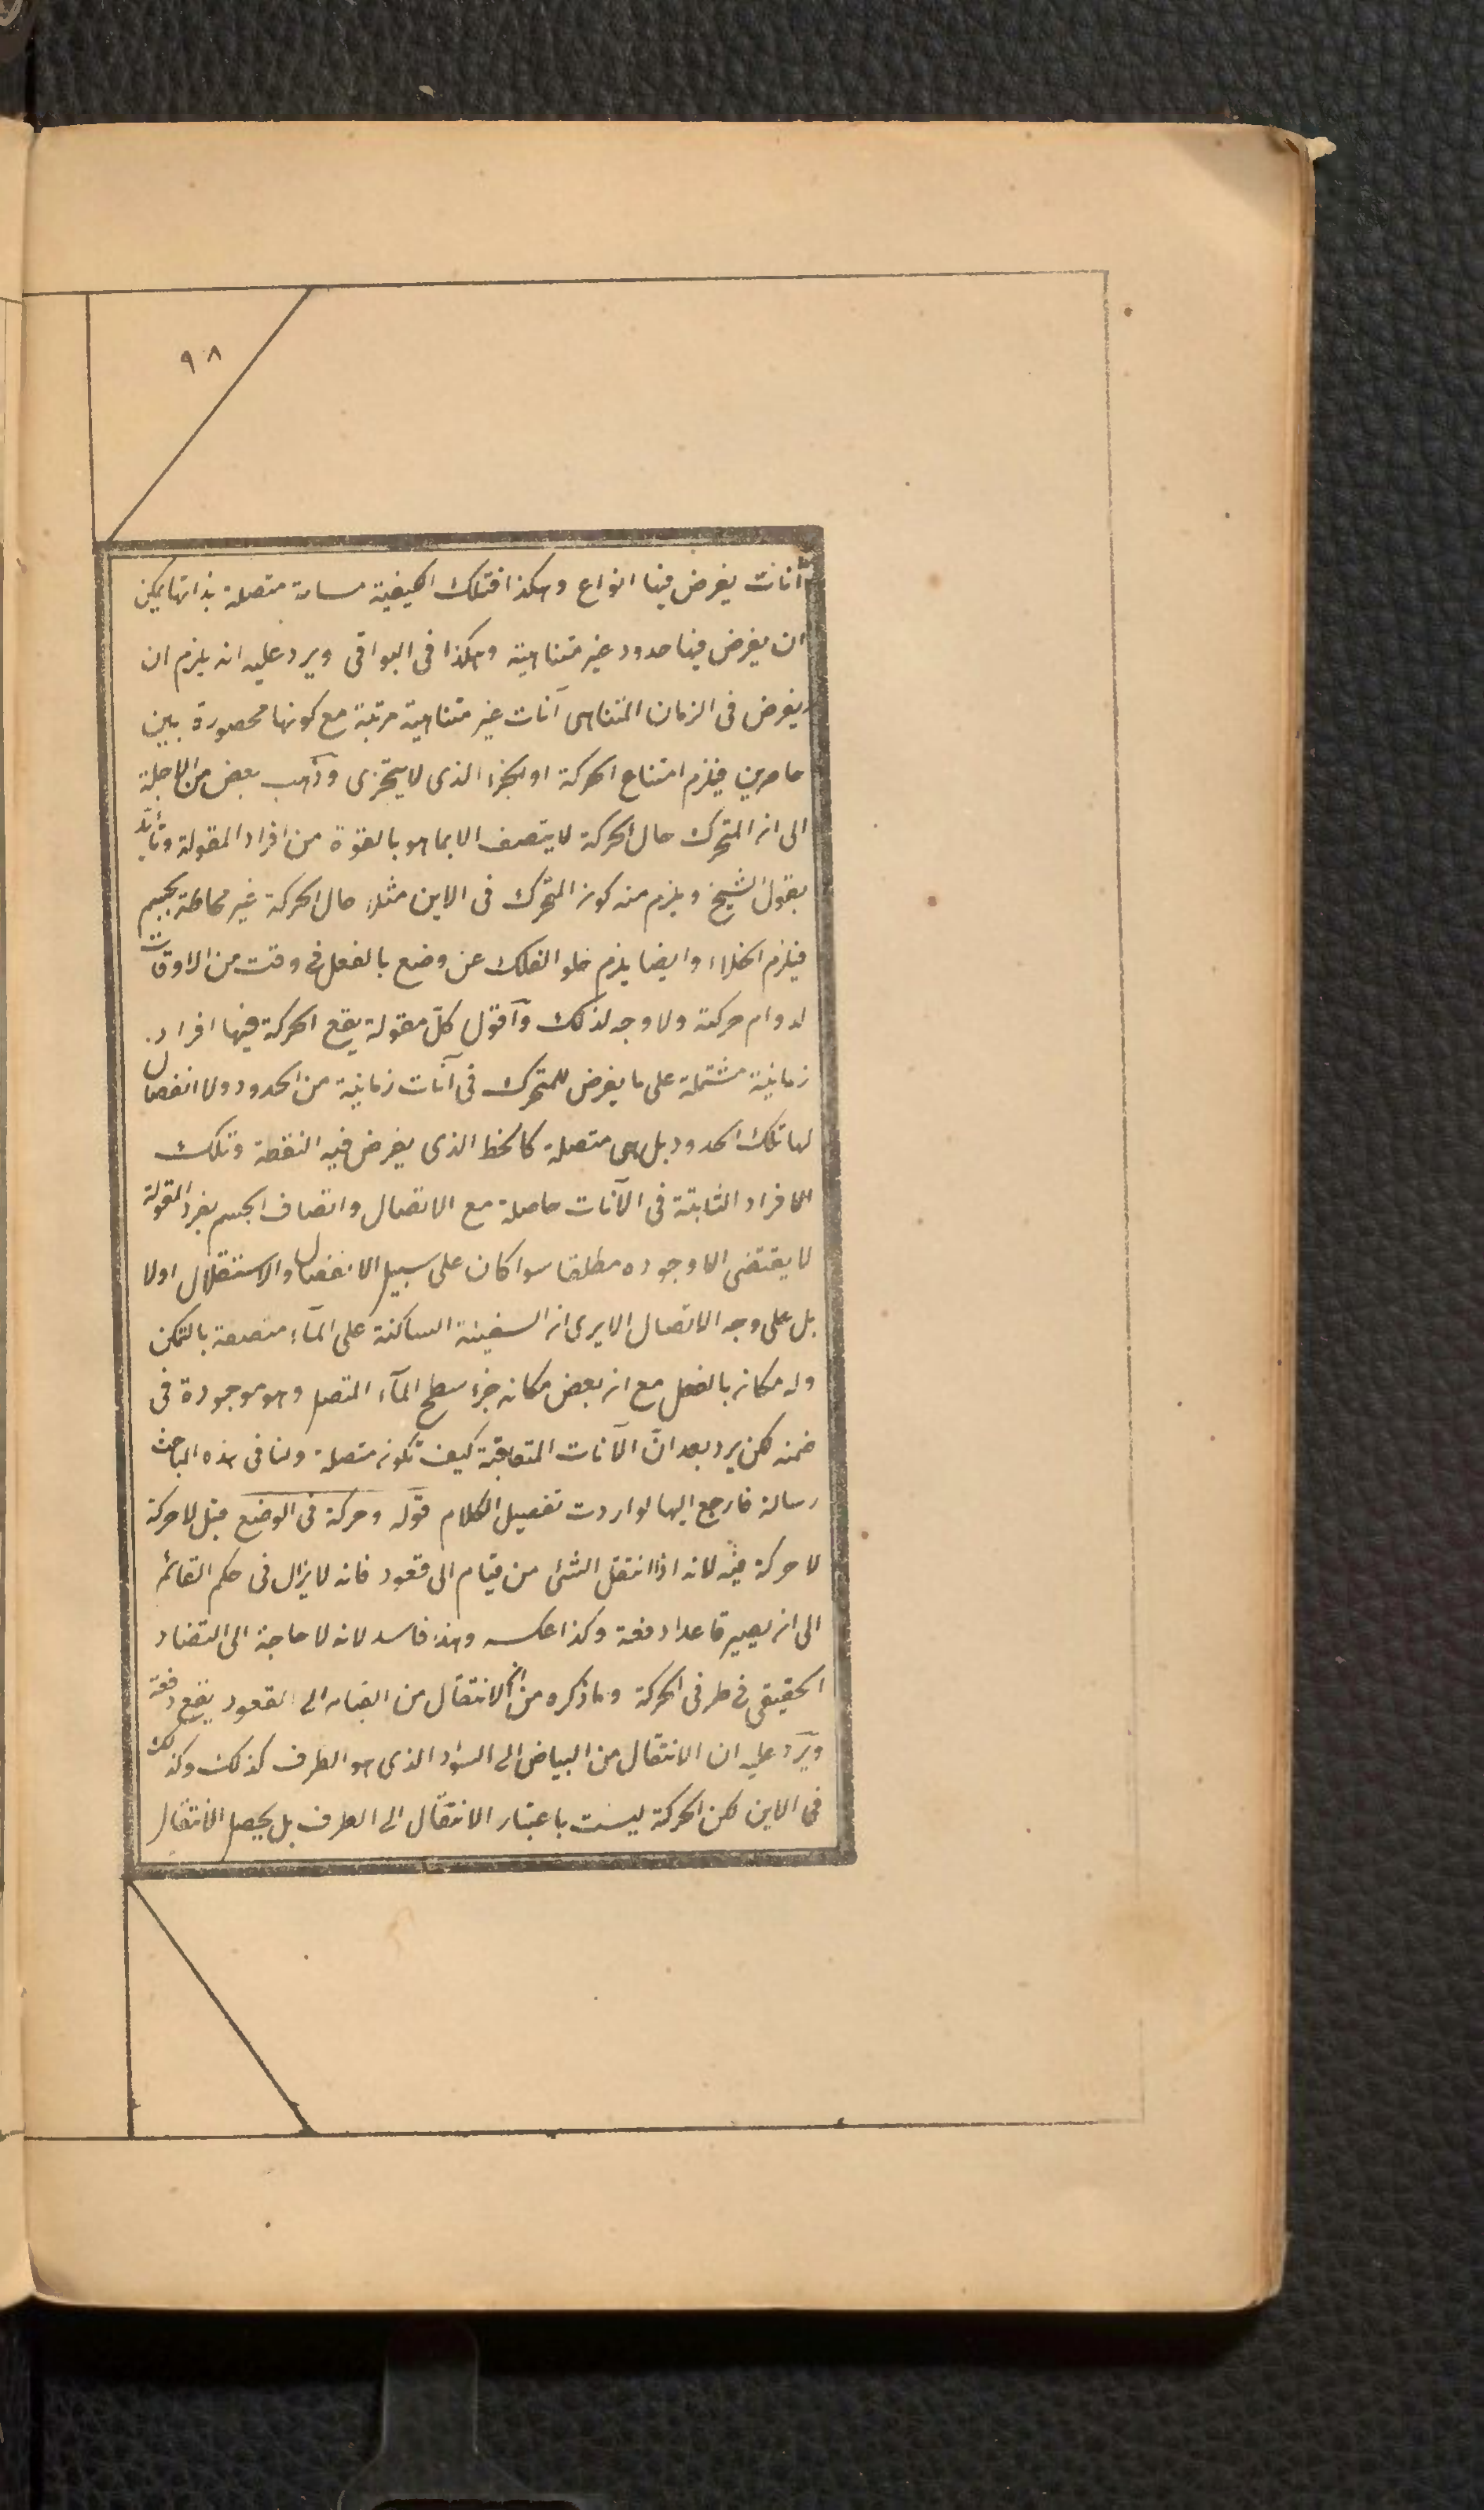 ٩٨
آنات يفرض فيها انواع وهكذا فتلك الكيفية مسافة متصلة بذاتها يمكن
ان يفرض فيها حدود غير متناهية وهكذا فى البواقى ويرد عليه انه يلزم ان
يفرض فى الزمان المتناهى آنات غير متناهية مرتبة مع كونها محصورة بين
حاصرين فيلزم امتناع الحركة او الجزء الذى لا يتجزى وذهب بعض من الاجلة
الى ان المتحرك حال الحركة لا يتصف الا بما هو بالقوة من افراد المقولة وتأيد
بقول الشيخ ويلزم منه كون المتحرك فى الاين مثلا حال الحركة غير محاطة بجسم
فيلزم الخلاء وايضا يلزم خلو الفلك عن وضع بالفعل فى وقت من الاوقات
لدوام حركته ولا وجه لذلك وآقول كلّ مقولة يقع الحركة فيها افراد
زمانية مشتملة على ما يفرض للمتحرك فى آنات زمانية من الحدود ولا انفصال
لها تلك الحدود بل هى متصلة كالخط الذى يفرض فيه النقطة وتلك
الافراد الثابتة فى الآنات حاصلة مع الاتصال واتصاف الجسم بفرد المقولة
لا يقتضى الا وجوده مطلقا سوا كان على سبيل الانفصال والاستقلال اولا
بل على وجه الاتصال الا يرى ان السفينة الساكنة على المآء متصفة بالتمكن
وله مكان بالفعل مع ان بعض مكانه جزء سطح المآء المتصل وهو موجودة فى
ضمنه لكن يرد بعد انّ الآنات المتعاقبة كيف تكون متصلة ولنا فى هذه المباحث
رسالة فارجع اليها لو اردت تفصيل الكلام قوله وحركة فى الوضع قيل لا حركة
لا حركة فيه لانه اذا انتقل الشئ من قيام الى قعود فانه لا يزال فى حكم القائم
الى ان يصير قاعدا دفعة وكذا عكسه وهذا فاسد لانه لا حاجة الى التضاد
الحقيقى فى طرفى الحركة وما ذكره من ان الانتقال من القيام الى القعود يقع دفعة
ويرد عليه ان الانتقال من البياض الى السواد الذى هو الطرف كذلك وكذلك
فى الاين لكن الحركة ليست باعتبار الانتقال الى الطرف بل يحصل الانتقال